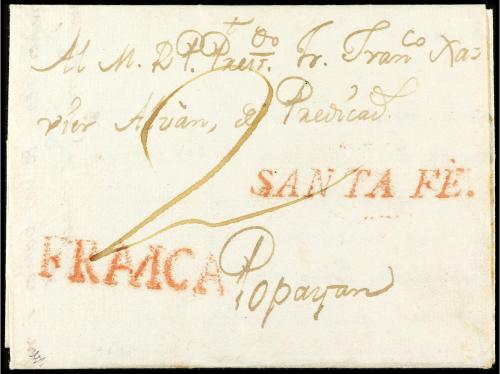 Al M. R. P. Preᵗ. Jᵈᵒ. Fr. Franᶜᵒ Xa-
vier Alván, de Predicad.
2
SANTA FÈ.
FRANCA
Popayan